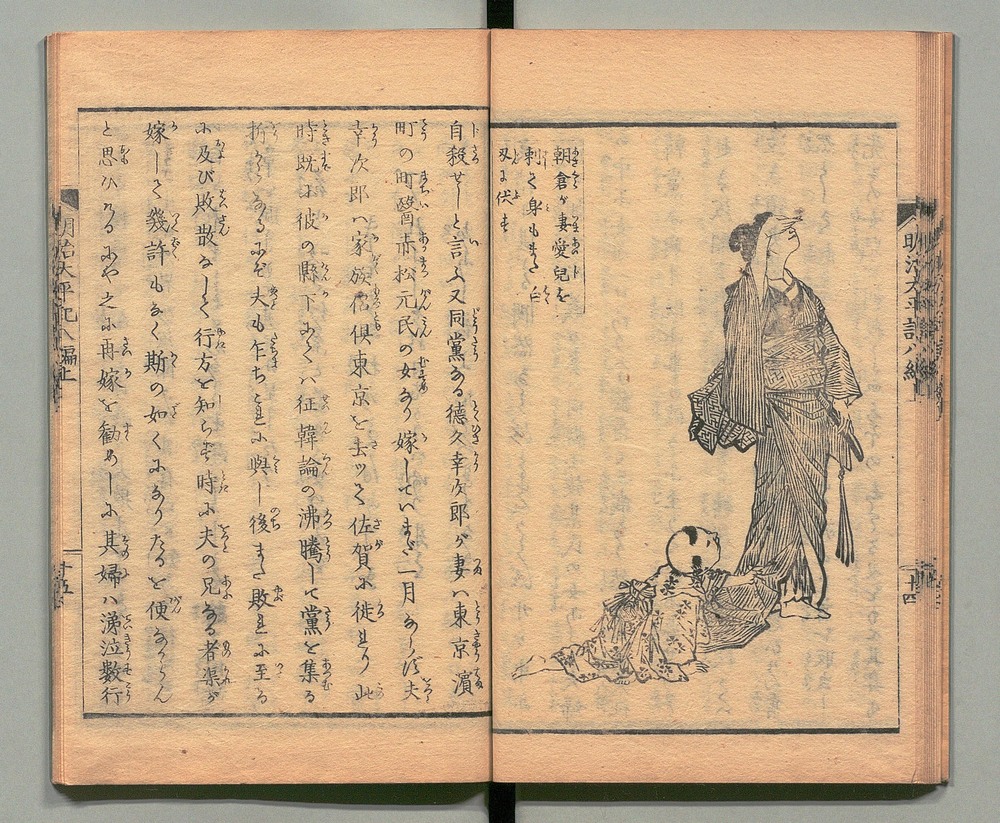 明治太平記八編
十四
朝倉が妻愛兒を
刺て身もまた白
刃に伏す
自殺せしと言ふ又同黨ある徳久幸次郎が妻ハ東京濱
町の町醫赤松元民の女なり嫁していまだ一月ならず夫
幸次郎ハ家族倶東京を去ッて佐賀に徙れり此
時既に彼の縣下にてハ征韓論の沸騰して黨を集る
折からなるにぞ夫も乍ちこれに與し後また敗れに至る
に及び敗散なして行方を知らず時に夫の兄ある者渠が
嫁して幾許もなく斯の如くになりたるを便なからん
と思ひけるにや之に再嫁を勧めしに其婦ハ涕泣数行
明治太平記八編上
十五